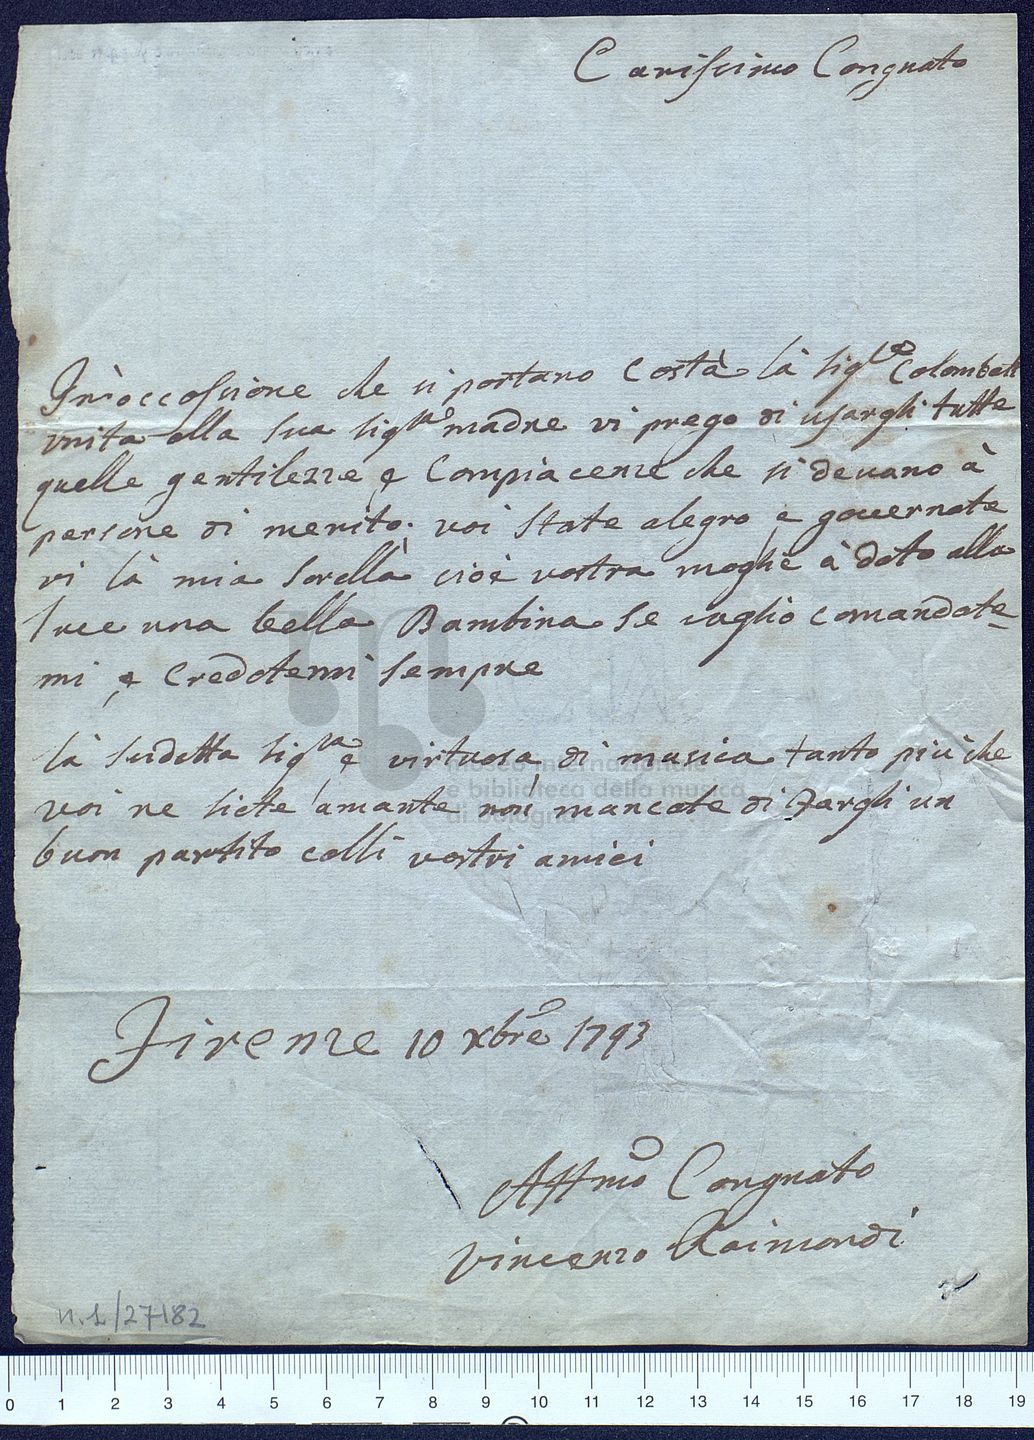 Carissimo Congnato
In'occossione che si portano costà là Sig.ra Colombati
unita alla sua sig.ra madre vi prego di usargli tutte
quelle gentilezze e Compiacenze che si devano à
persone di merito; voi state alegro e governate
vi là mia Sorellà cioè vostra moglie à dato alla
luce una bella Bambina se vaglio comandate-
mi e Credotemi sempre
là sudetta sig.ra e virtuosa di musica tanto più che
voi ne siete amante non mancate di Fargli un
buon partito colli vostri amici
Firenze 10 xbre 1793
Affmo Congnato
Vincenzo Raimondi
n.1/27182
museo internazionale
e biblioteca della musica
di bologna
0 1 2 3 4 5 6 7 8 9 10 11 12 13 14 15 16 17 18 19